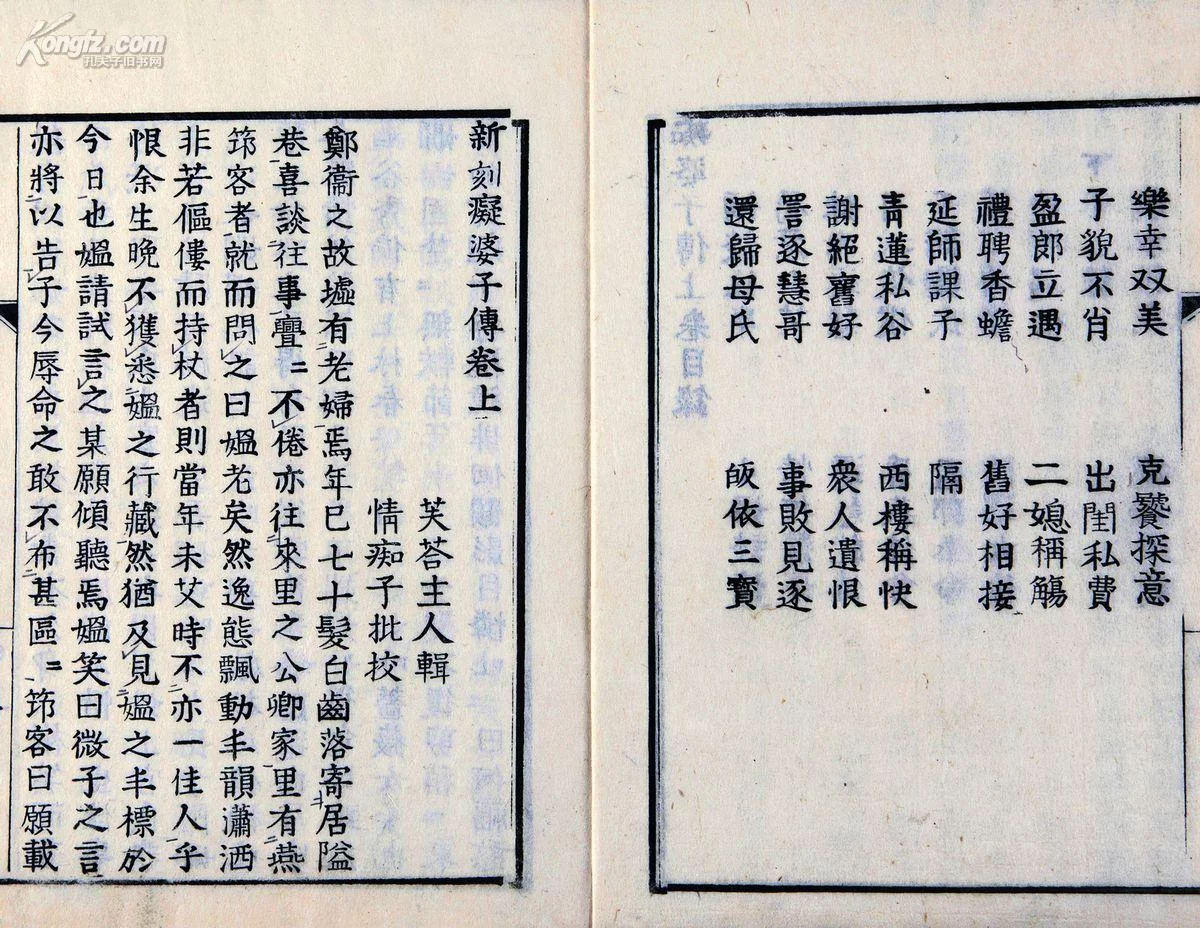 樂幸双美　克饔探意
子貌不肖　出閨私費
盈郎立遇　二媳稱觴
禮聘香蟾　舊好相接
延師課子　隔
青蓮私谷　西樓稱快
謝絕舊好　衆人遺恨
詈逐慧哥　事敗見逐
還歸母氏　皈依三寶
新刻癡婆子傳卷上
芙蓉主人輯
情痴子批挍
鄭衞之故墟有老婦焉年已七十髮白齒落寄居隘
巷喜談往事亹〻不倦亦往來里之公卿家里有燕
筇客者就而問之曰媼老矣然逸態飄動丰韻瀟洒
非若傴僂而持杖者則當年未艾時不亦一佳人乎
恨余生晚不獲悉媼之行藏然猶及見媼之丰標於
今日也媼請試言之某願傾聽焉媼笑曰微子之言
亦將以告子今辱命之敢不布甚區〻筇客曰願載
Kongfz.com
孔夫子旧书网